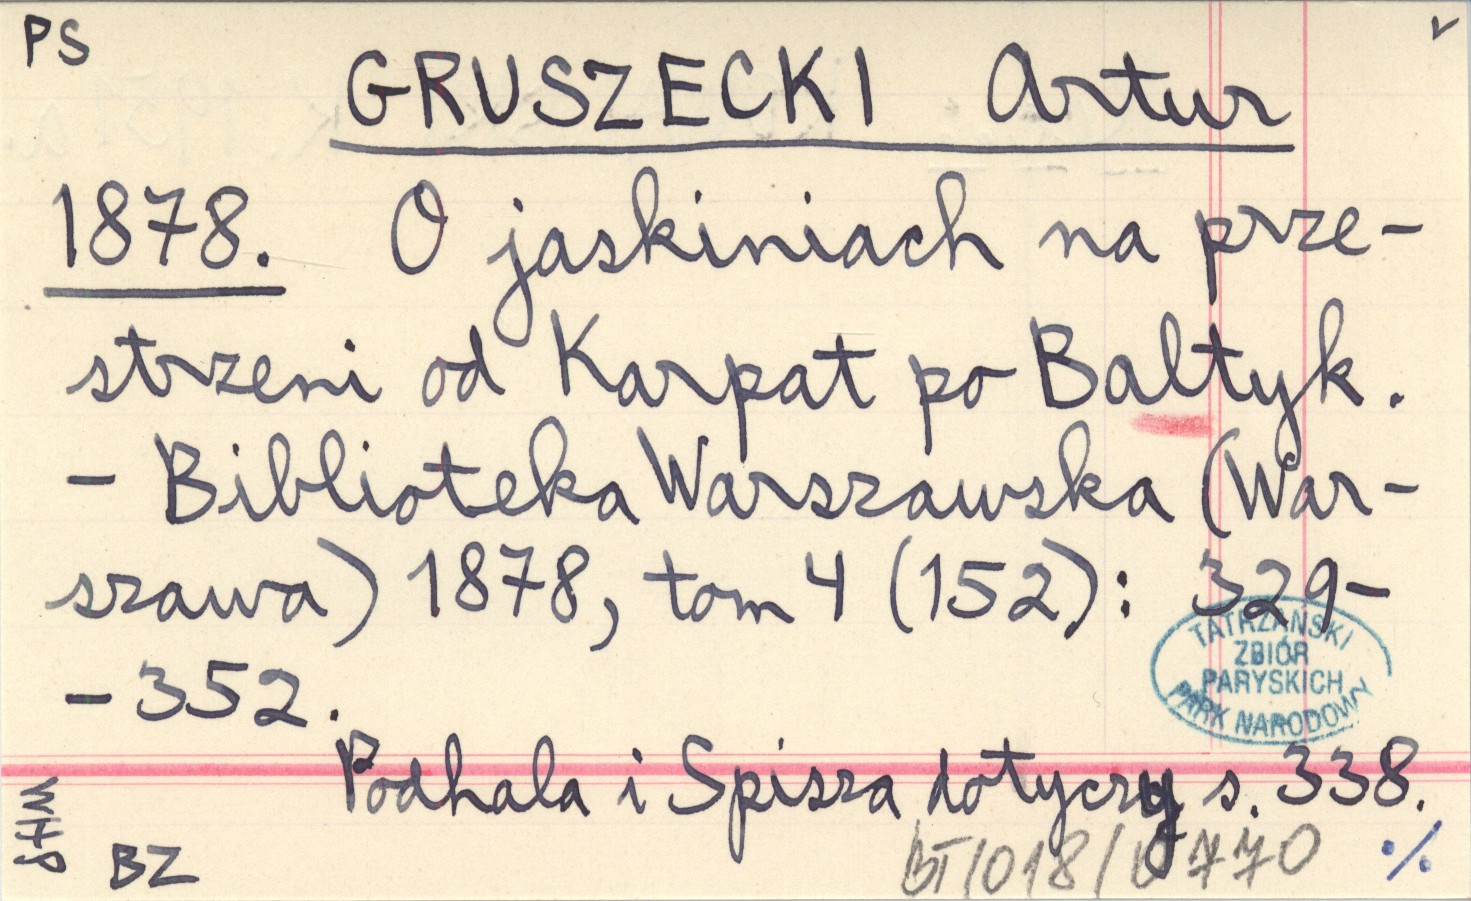 PS
GRUSZECKI Artur
1878. O jaskiniach na prze-
strzeni od Karpat po Baltyk.
- Biblioteka Warszawska (War-
szawa) 1878, tom 4 (152): 329-
-352.
TATRZAŃSKI
ZBIÓR
PARYSKICH
PARK NARODOWY
Podhala i Spisza dotyczy s. 338.
WHP
BZ
BT/018/0770
%